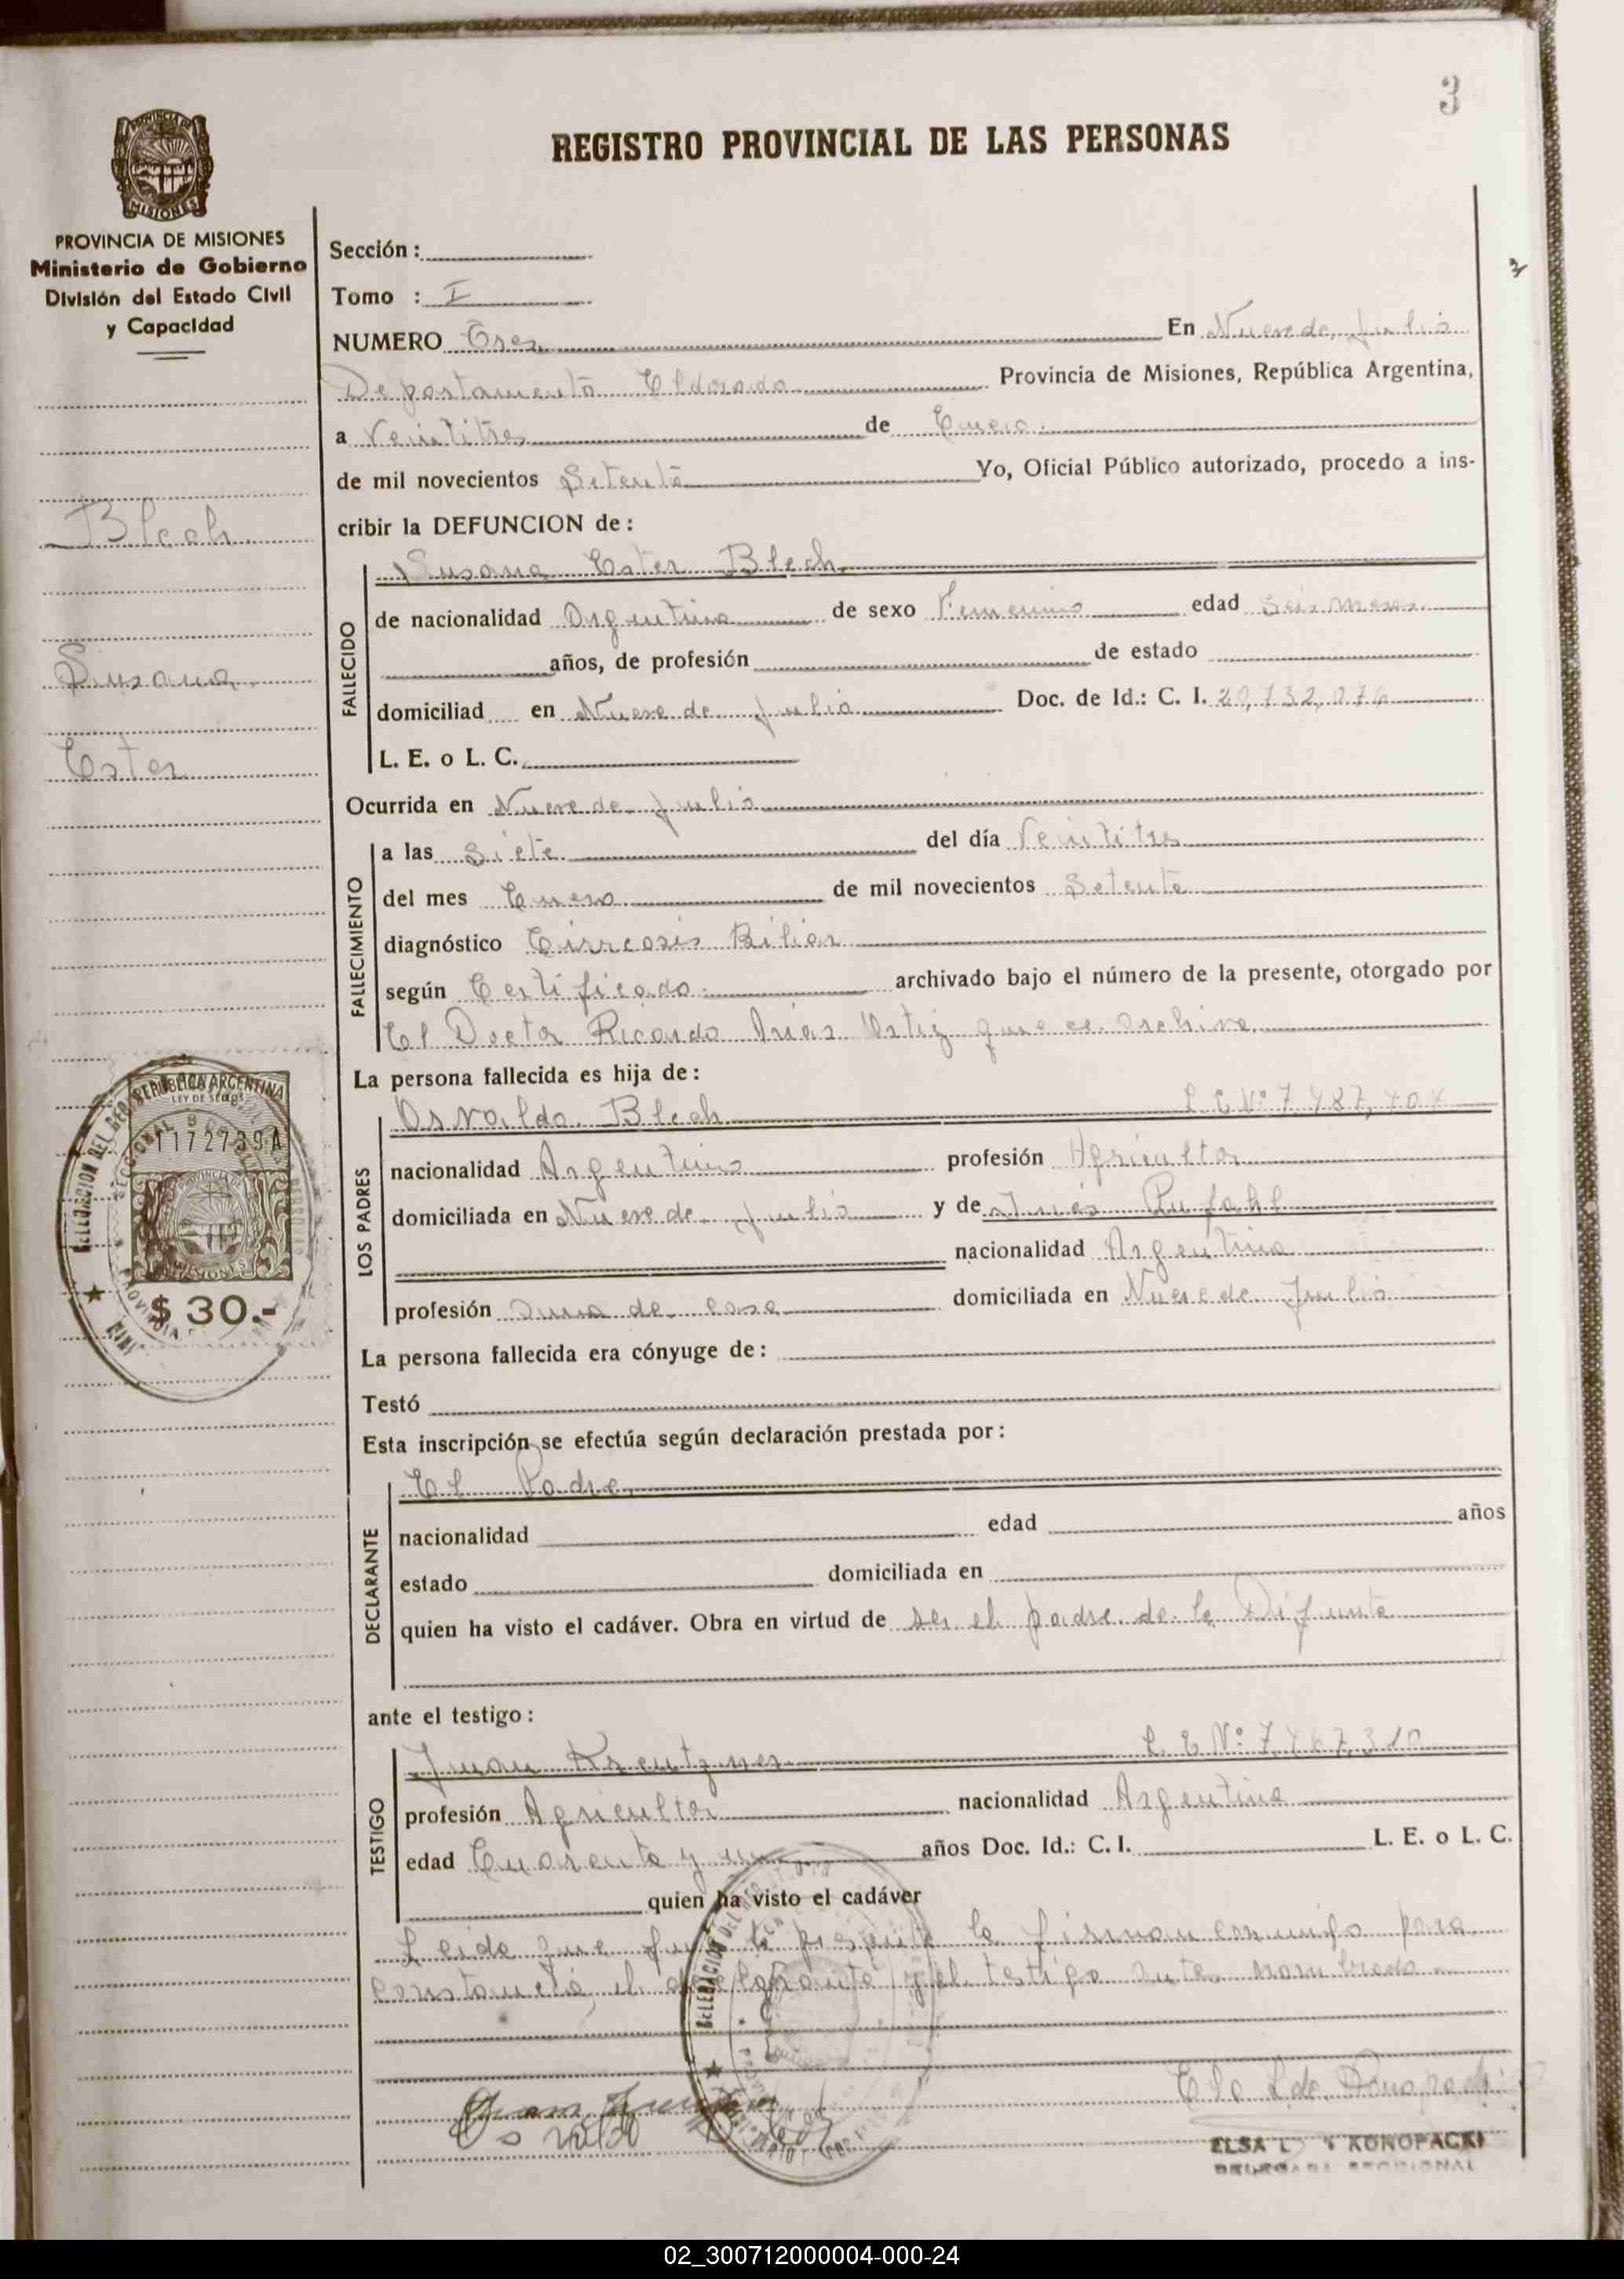 3
REGISTRO PROVINCIAL DE LAS PERSONAS
MISIONES
PROVINCIA DE MISIONES
Ministerio de Gobierno
División del Estado Civil
y Capacidad
Blech
Susana
Ester
Sección :
Tomo : I
NUMERO Tres En Nueve de Julio
Departamento Eldorado Provincia de Misiones, República Argentina,
a Veintitres de Enero
de mil novecientos Setenta Yo, Oficial Público autorizado, procedo a ins-
cribir la DEFUNCION de :
Susana Ester Blech
FALLECIDO
de nacionalidad Argentina de sexo Femenino edad Seis meses
años, de profesión de estado
domiciliad en Nueve de Julio Doc. de Id.: C. I. 20,732,076
L. E. o L. C.
Ocurrida en Nueve de Julio
FALLECIMIENTO
a las Siete del día Veintitres
del mes Enero de mil novecientos Setenta
diagnóstico Cirrcosis Biliar
según Certificado archivado bajo el número de la presente, otorgado por
El Doctor Ricardo Arias Ortiz que se archiva
La persona fallecida es hija de :
LOS PADRES
Osvaldo Blech L E Nº 7,487,
nacionalidad Argentino profesión Agricultor
domiciliada en Nueve de Julio y de Inés Rufahl
nacionalidad Argentina
profesión Ama de casa domiciliada en Nueve de Julio
REPUBLICA ARGENTINA
LEY DE SELLOS
1172739A
MISIONES
$ 30.-
La persona fallecida era cónyuge de :
Testó
Esta inscripción se efectúa según declaración prestada por :
DECLARANTE
El Padre
nacionalidad edad años
estado domiciliada en
quien ha visto el cadáver. Obra en virtud de ser el padre de la Difunta
ante el testigo :
TESTIGO
Juan Kreutzner L E Nº: 7,467,310
profesión Agricultor nacionalidad Argentina
edad Cuarenta y un años Doc. Id.: C. I. L. E. o L. C.
quien ha visto el cadáver
Leida que fue la presente la firman conmigo para
constancia, el declarante y el testigo antes nombrado
Juan
Osvaldo Blech
ELSA L KONOPACKI
DELEGADA SECCIONAL
02_300712000004-000-24